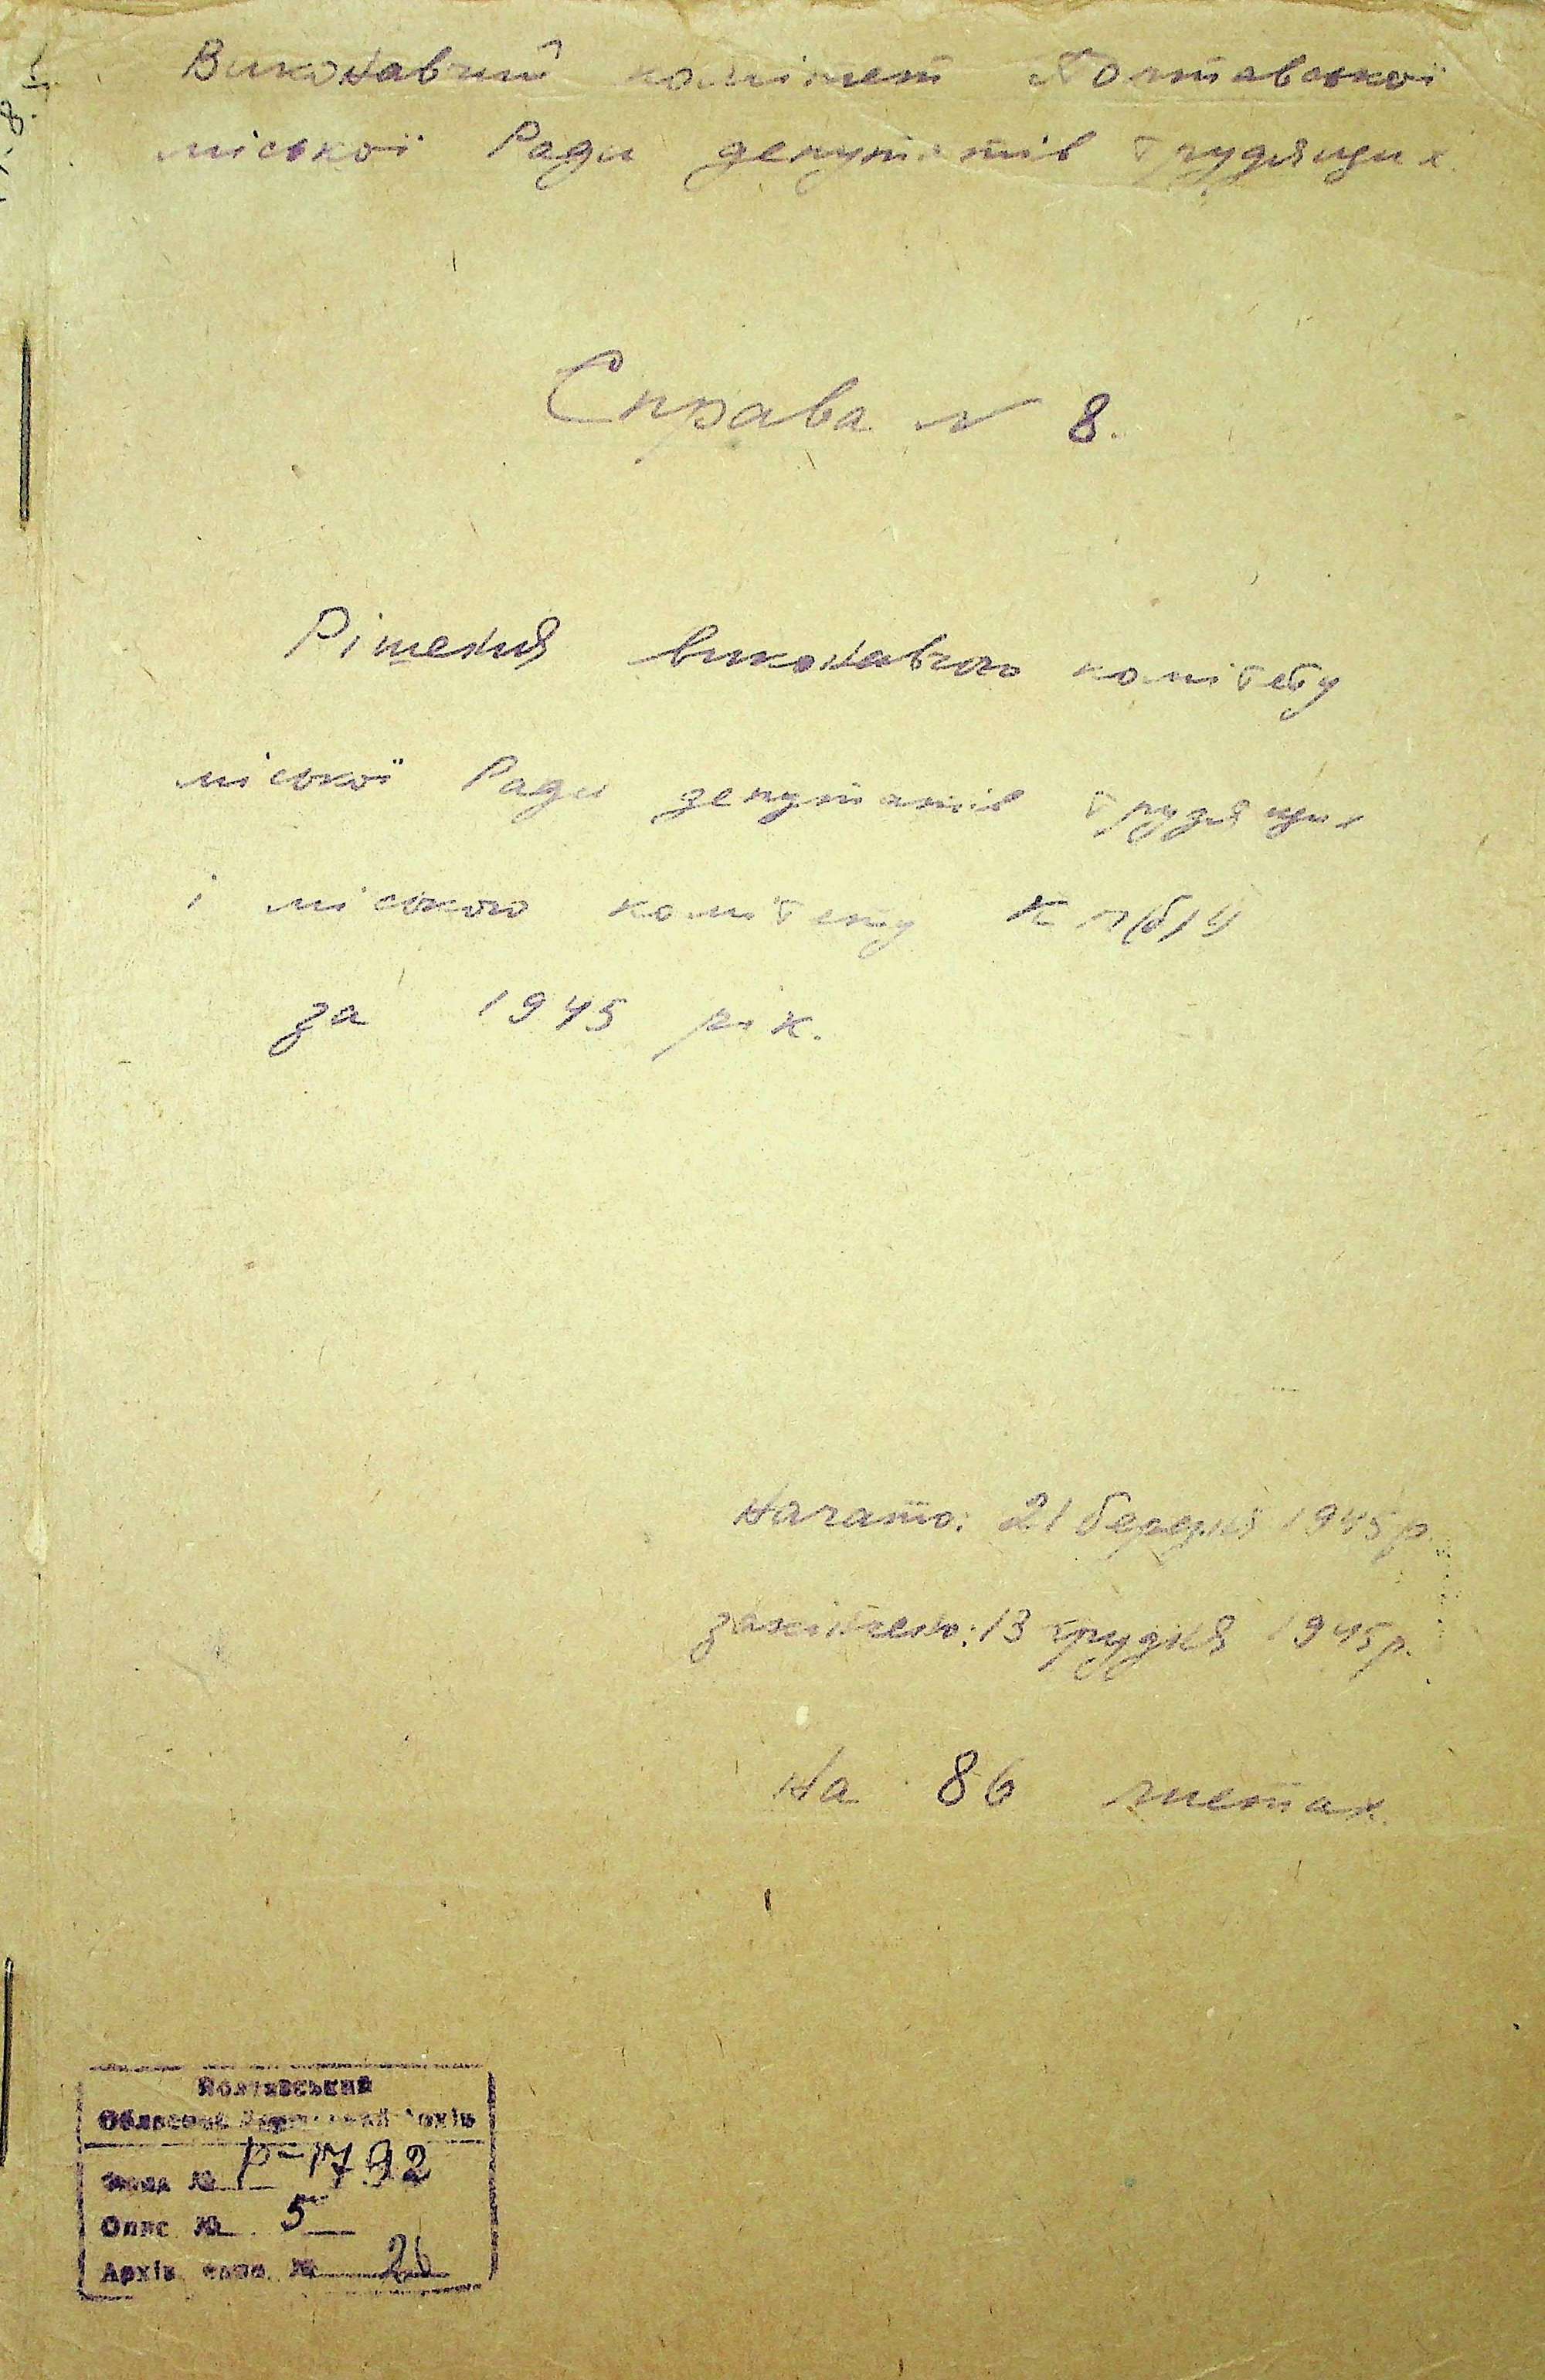 Виконавчий комітет Полтавської
міської Ради депутатів трудящих.
Справа № 8.
Рішення виконавчого комітету
міської Ради депутатів трудящих
і міського комітету КП(б)У
за 1945 рік.
Начато: 21 березня 1945 р.
закінчено: 13 грудня 1945 р.
На 86 листах.
Полтавський
Обласний Державний Архів
Фонд № Р-1792
Опис № 5
Архів. № 26